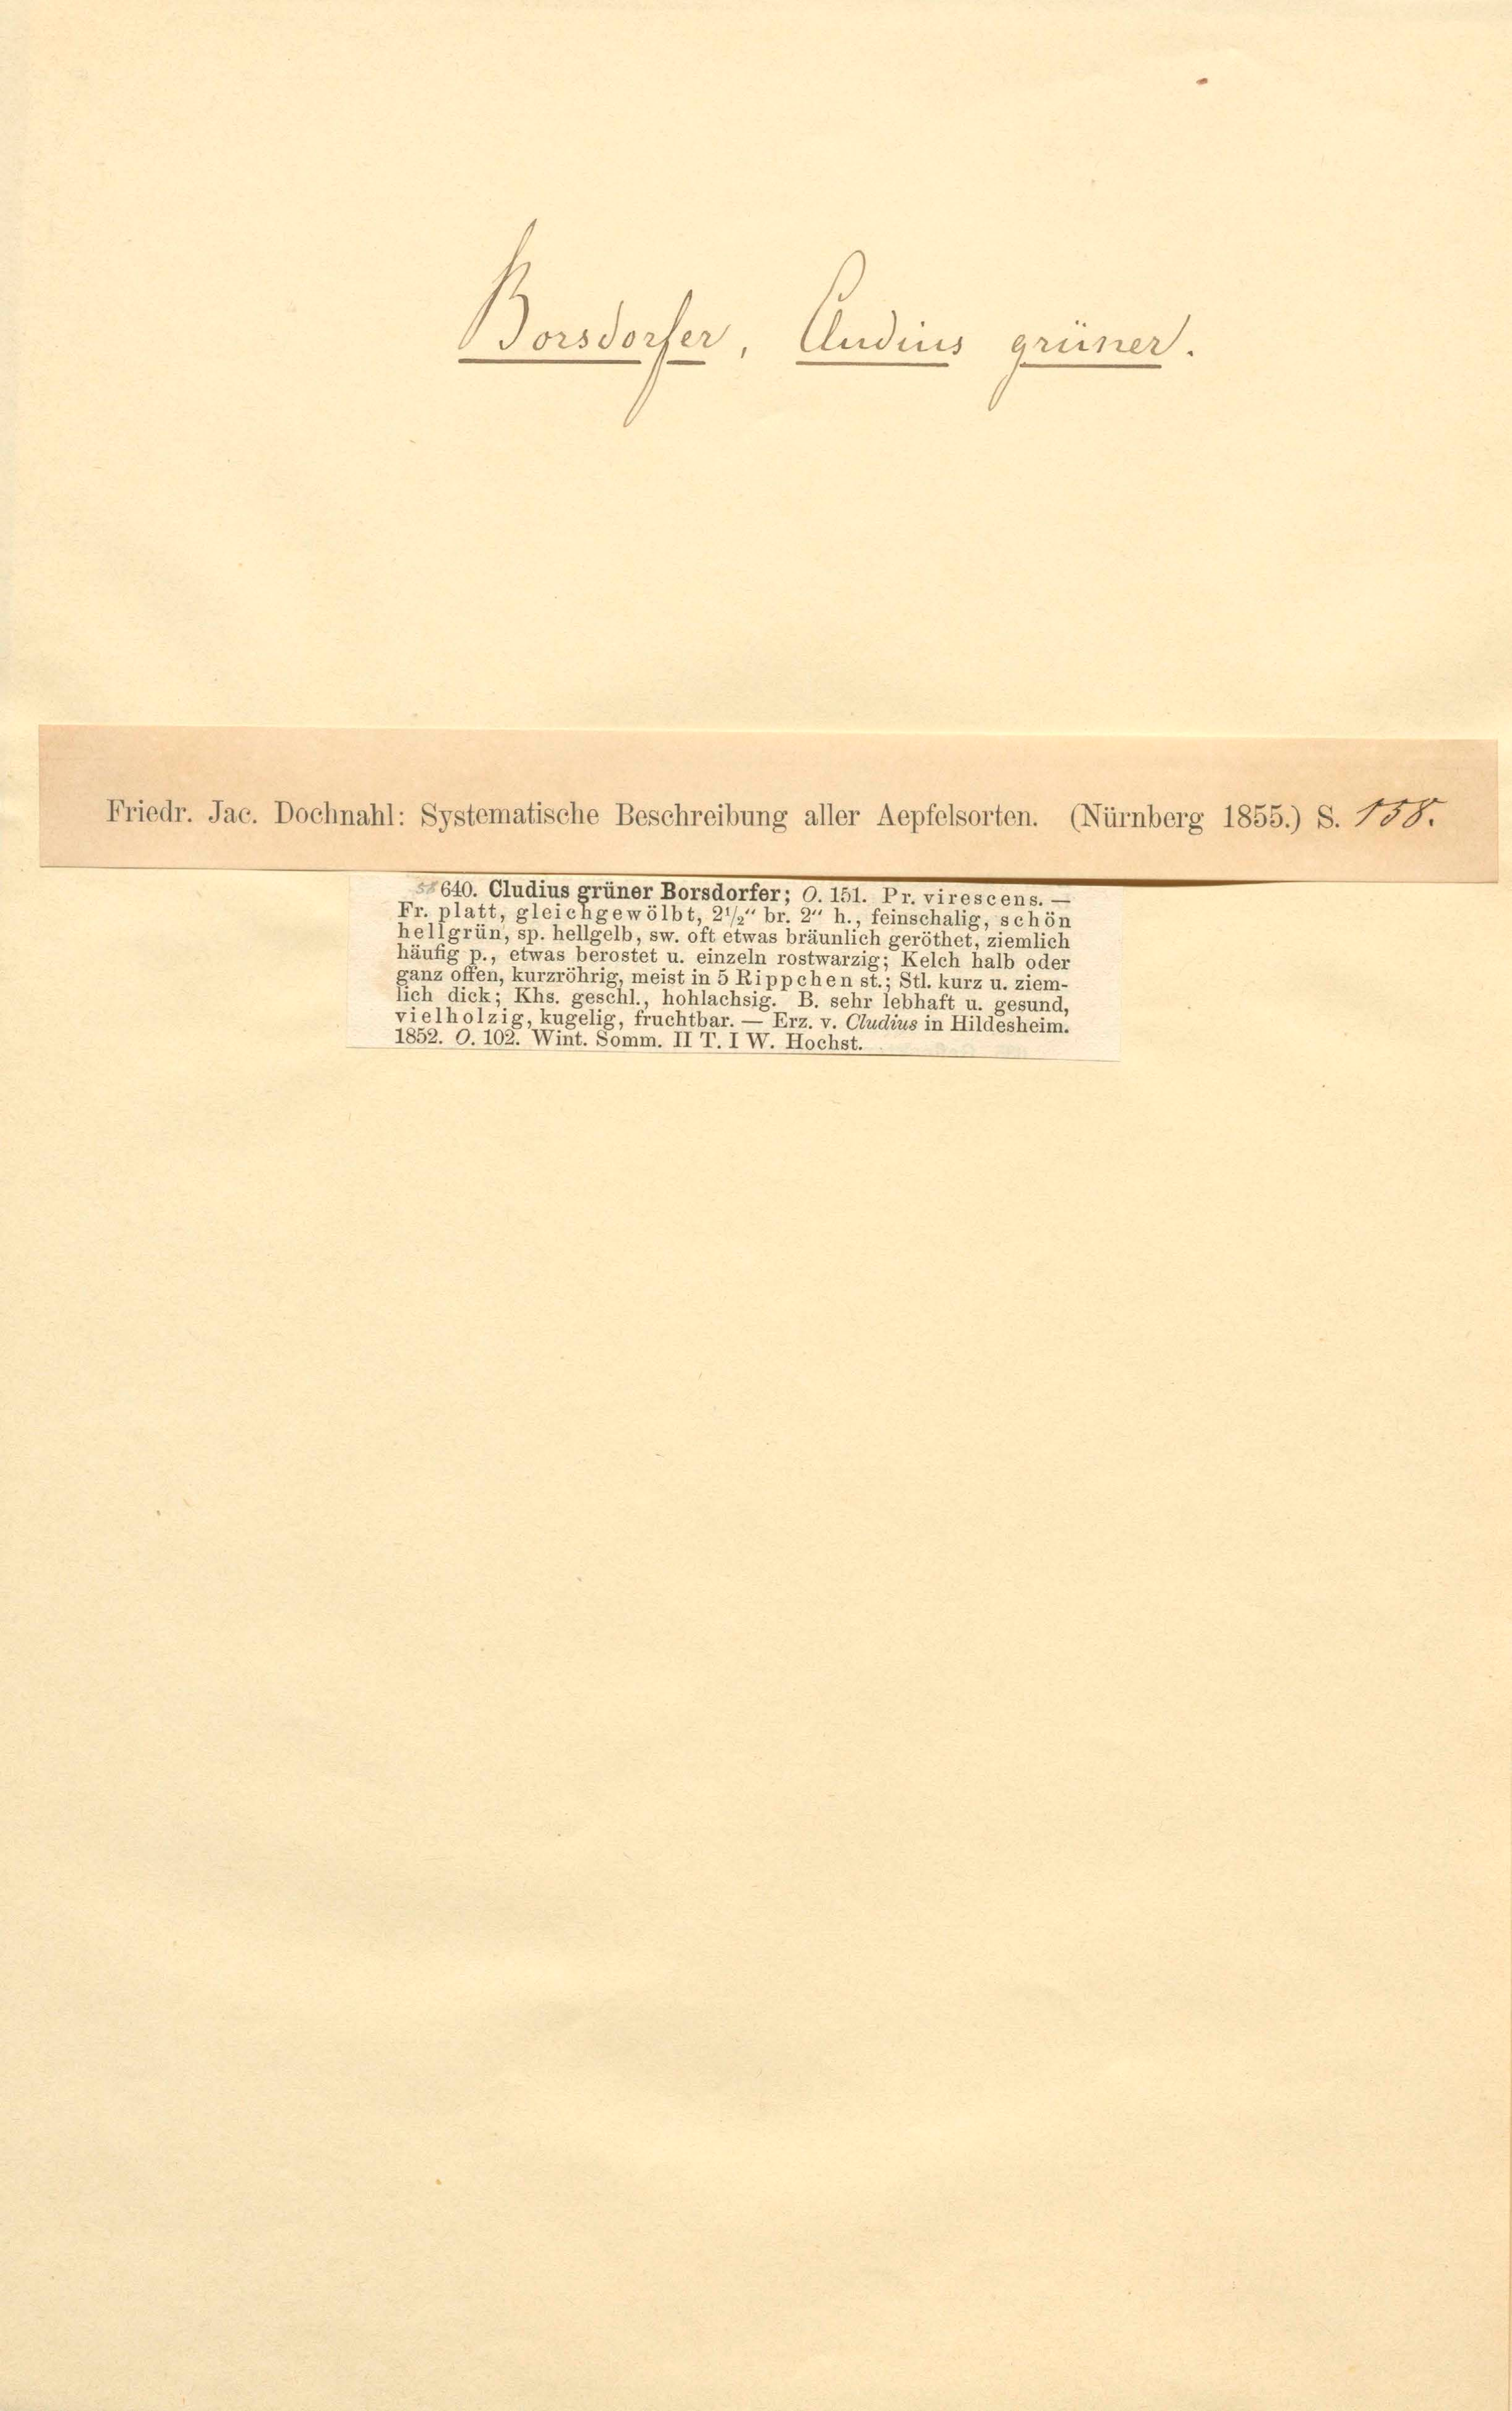 Borsdorfer, Cludius grüner.
Friedr. Jac. Dochnahl: Systematische Beschreibung aller Aepfelsorten. (Nürnberg 1855.) S. 158.
640. Cludius grüner Borsdorfer; O. 151. Pr. virescens. —
Fr. platt, gleichgewölbt, 2½“ br. 2“ h., feinschalig, schön
hellgrün, sp. hellgelb, sw. oft etwas bräunlich geröthet, ziemlich
häufig p., etwas berostet u. einzeln rostwarzig; Kelch halb oder
ganz offen, kurzröhrig, meist in 5 Rippchen st.; Stl. kurz u. ziem-
lich dick; Khs. geschl., hohlachsig. B. sehr lebhaft u. gesund,
vielholzig, kugelig, fruchtbar. — Erz. v. Cludius in Hildesheim.
1852. O. 102. Wint. Somm. II T. I W. Hochst.